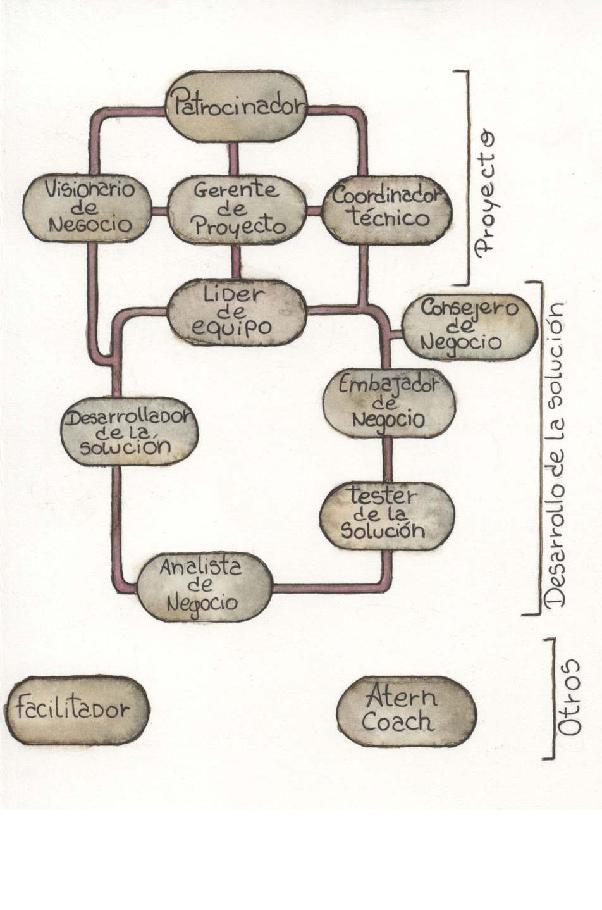 Patrocinador
Visionario
de
Negocio
Gerente
de
Proyecto
Coordinador
técnico
Proyecto
Lider
de
equipo
Consejero
de
Negocio
Embajador
de
Negocio
Desarrollador
de la
solución
tester
de la
Solución
Analista
de
Negocio
Desarrollo de la solución
facilitador
Atern
Coach
Otros